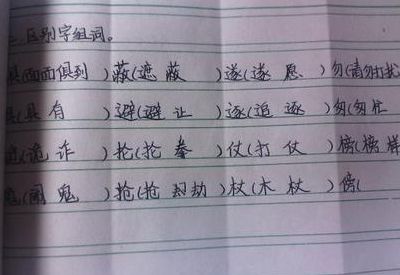 区别字组词。
俱(面面俱到 )蔽(遮蔽 )遂(遂愿 )勿(请勿打扰
具(具有 )避(避让 )逐(追逐 )匆(匆忙
(诡诈 )抡(抡拳 )仗(打仗 )榜(榜样
(闹鬼 )抢(抢劫 )杖(木杖 )傍(